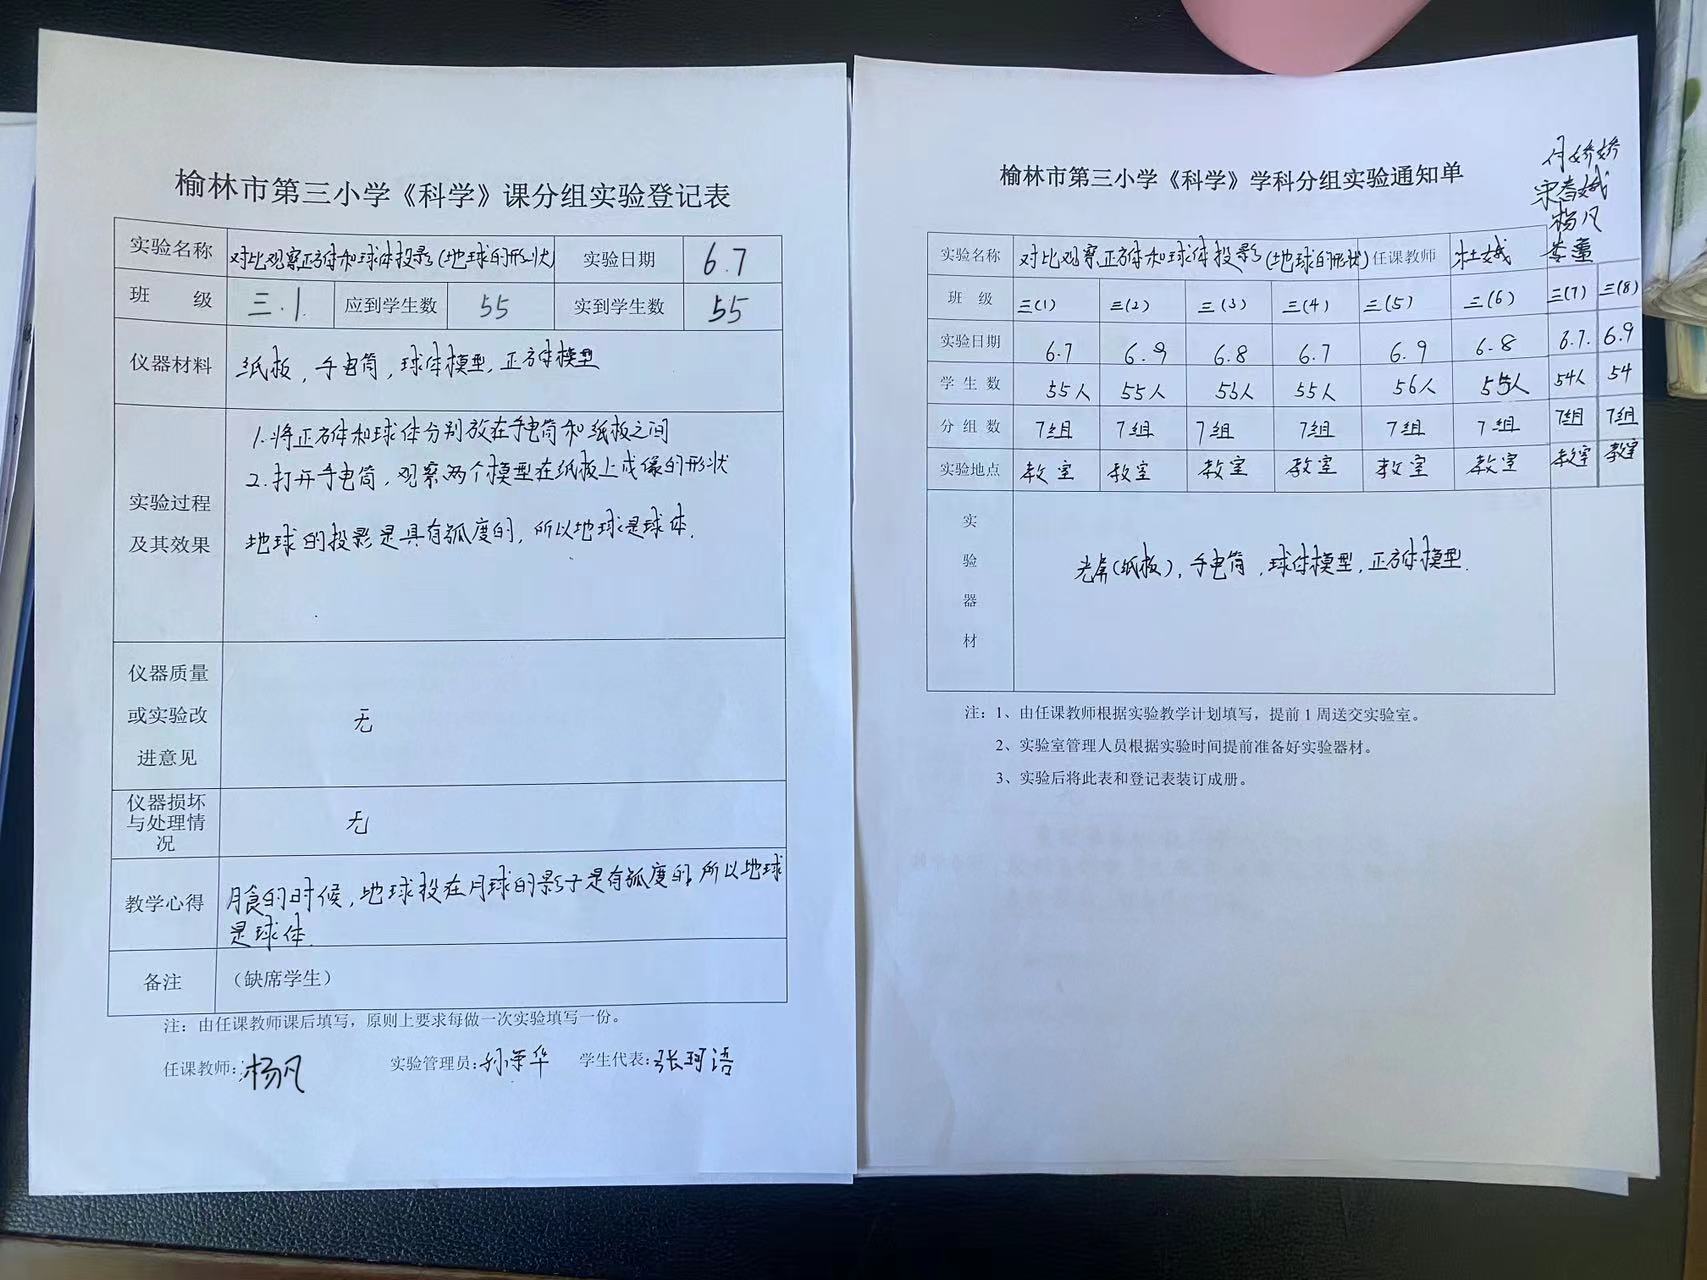 榆林市第三小学《科学》课分组实验登记表
实验名称 对比观察正方体和球体投影(地球的形状) 实验日期 6.7
班 级 三.1 应到学生数 55 实到学生数 55
仪器材料 纸板,手电筒,球体模型,正方体模型
实验过程及其效果
1.将正方体和球体分别放在手电筒和纸板之间
2.打开手电筒,观察两个模型在纸板上成像的形状
地球的投影是具有弧度的,所以地球是球体.
仪器质量
或实验改
进意见
无
仪器损坏
与处理情
况
无
教学心得
月食的时候,地球投在月球的影子是有弧度的,所以地球
是球体.
备注 (缺席学生)
注:由任课教师课后填写,原则上要求每做一次实验填写一份。
任课教师: 杨凡 实验管理员: 学生代表: 张珂语
榆林市第三小学《科学》学科分组实验通知单
杨凡
实验名称 对比观察正方体和球体投影(地球的形状) 任课教师 杜娥
班 级 三(1) 三(2) 三(3) 三(4) 三(5) 三(6) 三(7) 三(8)
实验日期 6.7 6.9 6.8 6.7 6.9 6.8 6.7. 6.9
学 生 数 55人 55人 55人 56人 55人 54人 54
分 组 数 7组 7组 7组 7组 7组 7组 7组 7组
实验地点 教室 教室 教室 教室 教室 教室 教室 教室
实
验
器
材
光屏(纸板),手电筒,球体模型,正方体模型.
注:1、由任课教师根据实验教学计划填写,提前1周送交实验室。
2、实验室管理人员根据实验时间提前准备好实验器材。
3、实验后将此表和登记表装订成册。